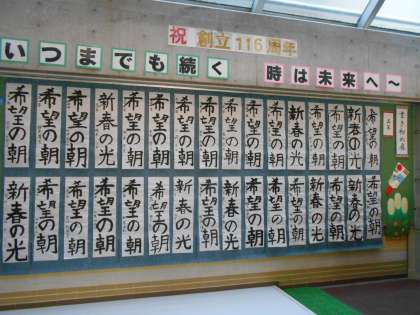 祝 創立116周年
いつまでも続く 時は未来へ～
希望の朝
希望の朝
希望の朝
新春の光
希望の朝
希望の朝
希望の朝
希望の朝
希望の朝
希望の朝
希望の朝
新春の光
希望の朝
希望の朝
新春の光
希望の朝
新春の光
希望の朝
希望の朝
新春の光
希望の朝
希望の朝
新春の光
新春の光
新春の光
希望の朝
希望の朝
希望の朝
新春の光
新春の光
希望の朝
希望の朝